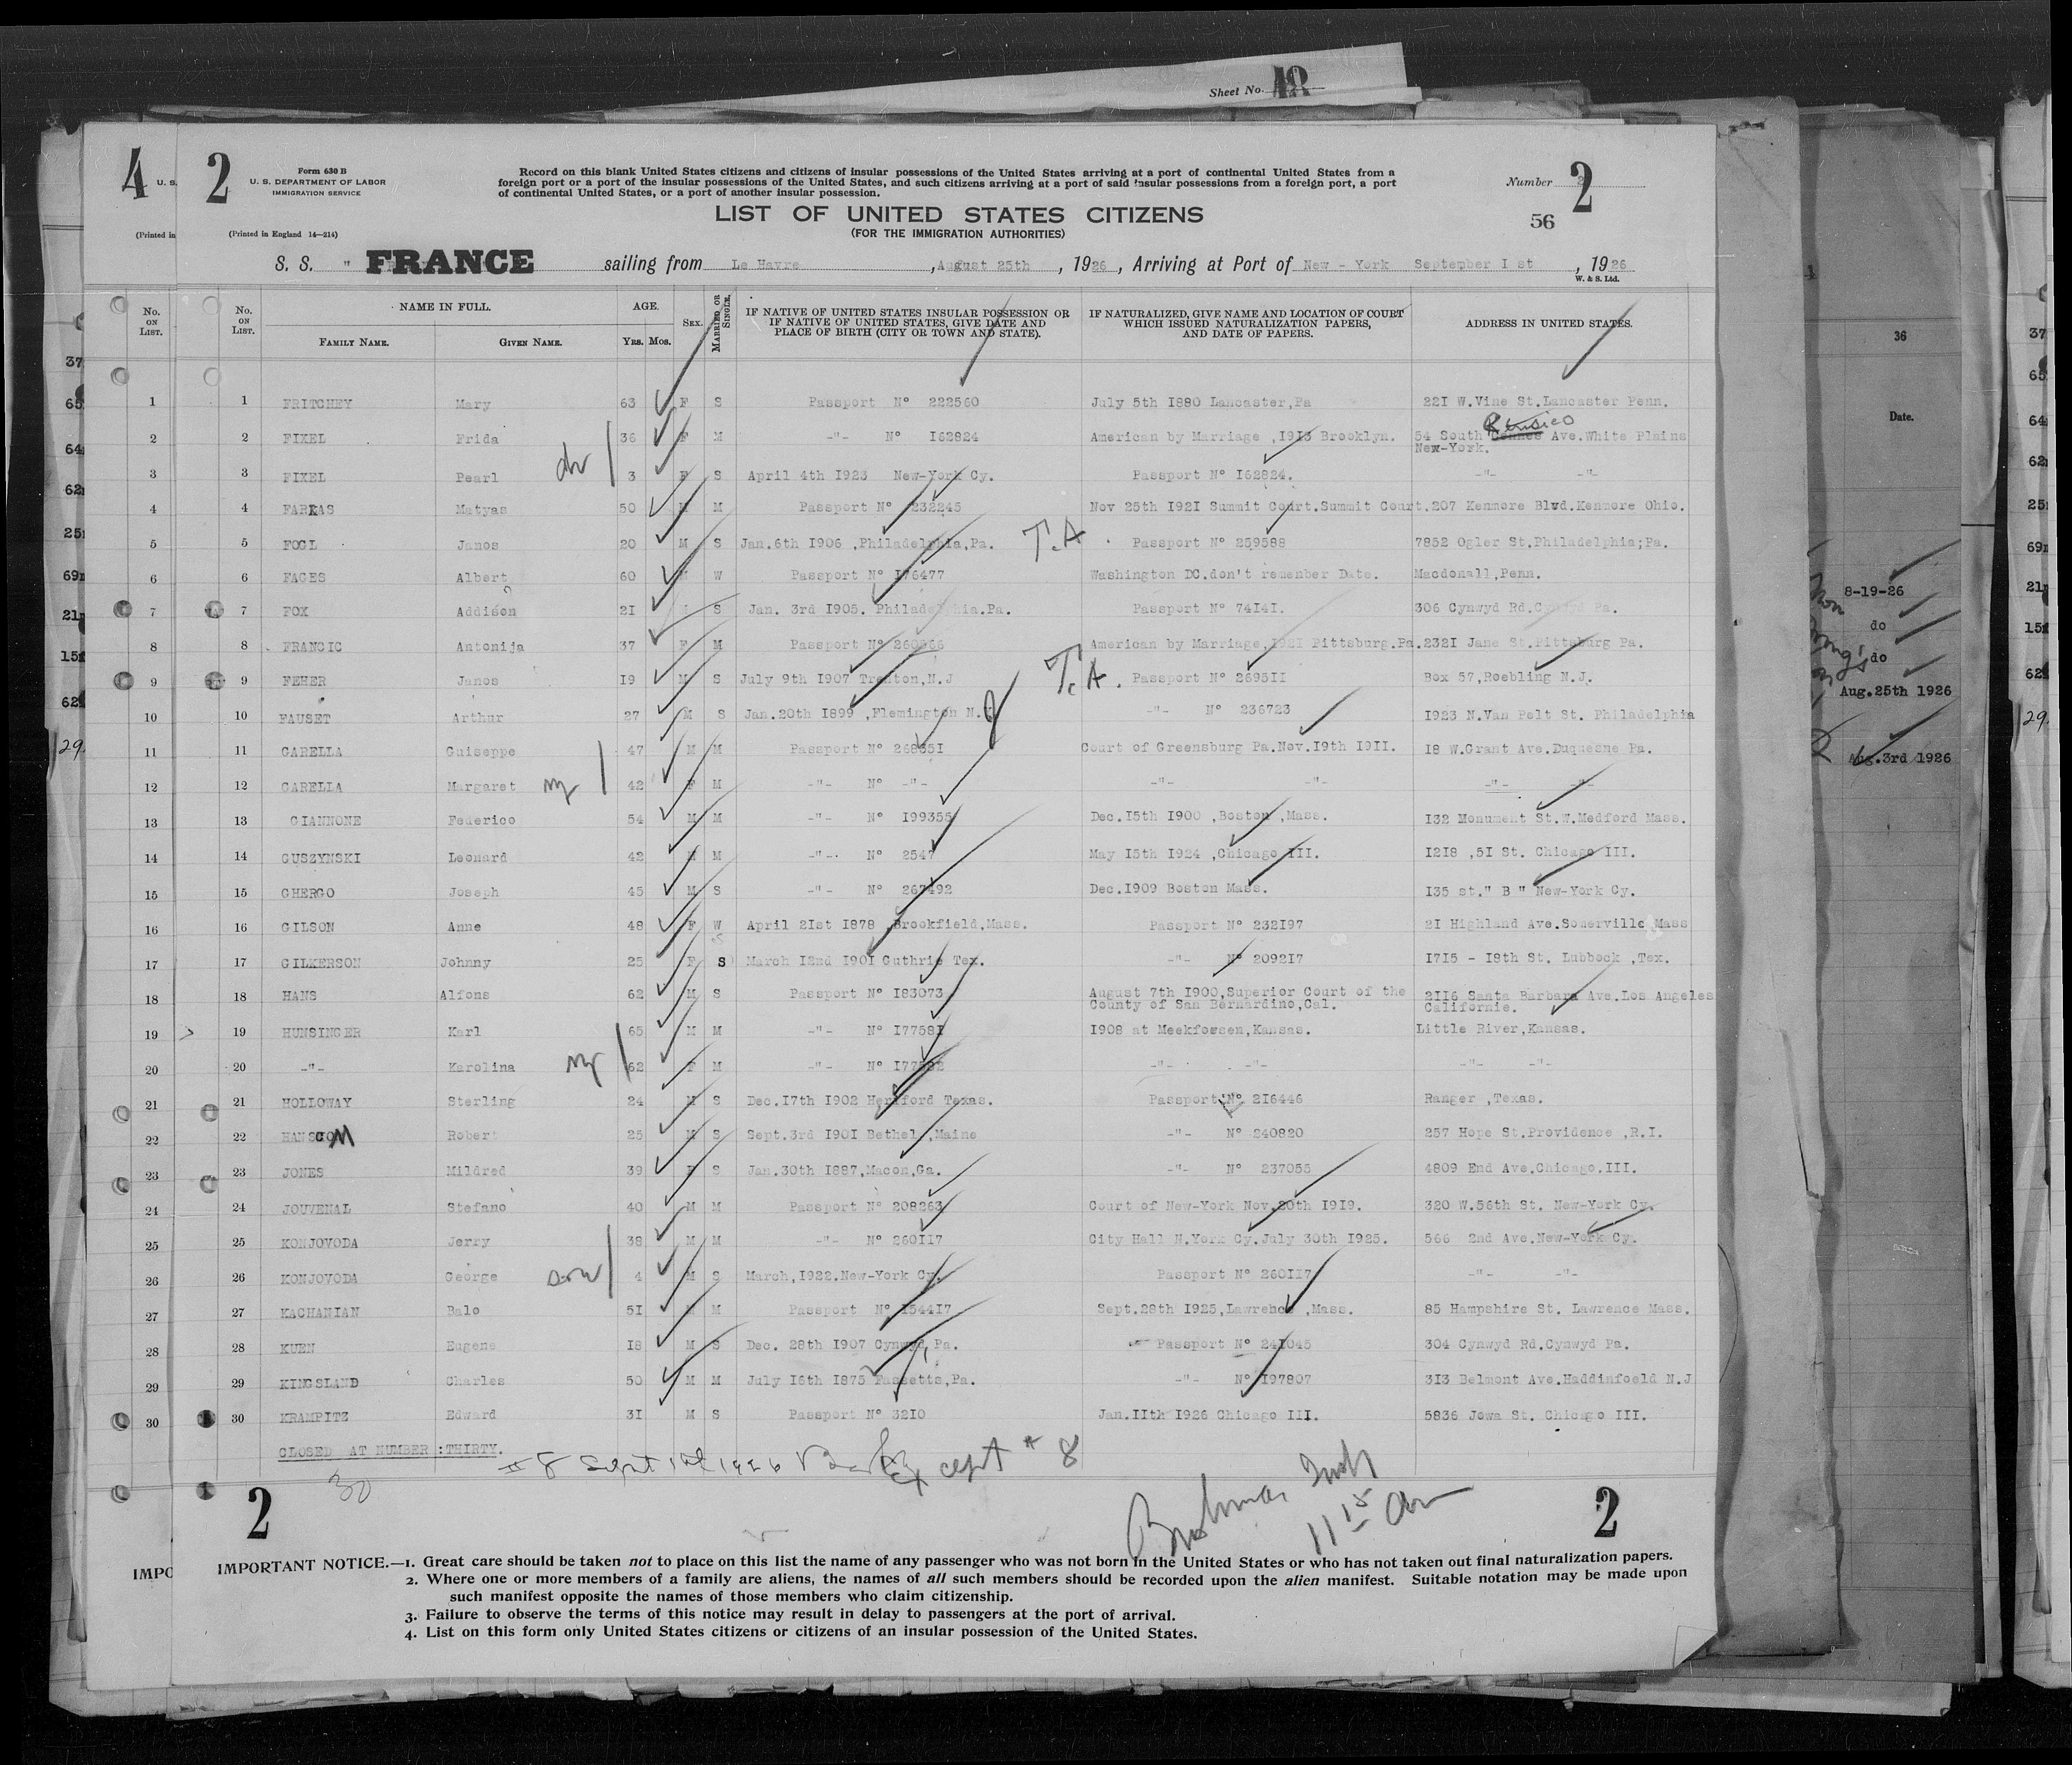 Sheet No. 18
4 2 Form 630 B
U. S. DEPARTMENT OF LABOR
IMMIGRATION SERVICE
(Printed in England 14—214)
Record on this blank United States citizens and citizens of insular possessions of the United States arriving at a port of continental United States from a
foreign port or a port of the insular possessions of the United States, and such citizens arriving at a port of said insular possessions from a foreign port, a port
of continental United States, or a port of another insular possession.
Number 2
56
LIST OF UNITED STATES CITIZENS
(FOR THE IMMIGRATION AUTHORITIES)
S. S. " FRANCE sailing from Le Havre , August 25th , 1926 , Arriving at Port of New - York September I st , 1926
W. & S. Ltd.
No. ON LIST. NAME IN FULL. FAMILY NAME. GIVEN NAME. AGE. YRS. MOS. SEX. MARRIED OR SINGLE. IF NATIVE OF UNITED STATES INSULAR POSSESSION OR IF NATIVE OF UNITED STATES, GIVE DATE AND PLACE OF BIRTH (CITY OR TOWN AND STATE). IF NATURALIZED, GIVE NAME AND LOCATION OF COURT WHICH ISSUED NATURALIZATION PAPERS, AND DATE OF PAPERS. ADDRESS IN UNITED STATES.
1 FRITCHEY Mary 63 F S Passport N° 222560 July 5th I880 Lancaster,Pa 22I W.Vine St.Lancaster Penn.
2 FIXEL Frida 36 F M -"- N° I62824 American by Marriage ,I9I3 Brooklyn. 54 South Ave.White Plains
New-York.
3 FIXEL Pearl 3 F S April 4th I923 New-York Cy. Passport N° I62824. -"- -"-
4 FARKAS Matyas 50 M M Passport N° 232245 Nov 25th I92I Summit Court.Summit Court.207 Kenmore Blvd.Kenmore Ohio.
5 FOGL Janos 20 M S Jan.6th I906 ,Philadelphia,Pa. T.A. Passport N° 259588 7852 Ogler St.Philadelphia;Pa.
6 FAGES Albert 60 M W Passport N° I76477 Washington DC.don't remember Date. Macdonall,Penn.
7 FOX Addison 2I S Jan. 3rd I905. Philadelphia.Pa. Passport N° 74I4I. 306 Cynwyd Rd,Cynwyd Pa.
8 FRANCIC Antonija 37 F M Passport N° 260966 American by Marriage,I92I Pittsburg.Pa.232I Jane St.Pittsburg Pa.
9 FEHER Janos I9 M S July 9th I907 Trenton,N.J T.A. Passport N° 2695II Box 57,Roebling N.J.
10 FAUSET Arthur 27 M S Jan.20th I899 ,Flemington N.J -"- N° 236723 I923 N.Van Pelt St. Philadelphia
11 GARELLA Guiseppe 47 M M Passport N° 26865I Court of Greensburg Pa.Nov.I9th I9II. I8 W.Grant Ave.Duquesne Pa.
12 GARELLA Margaret 42 F M -"- N° -"- -"- -"- -"- -"-
13 GIANNONE Federico 54 M M -"- N° I99355 Dec.I5th I900 ,Boston ,Mass. I32 Monument St.W.Medford Mass.
14 GUSZYNSKI Leonard 42 M M -"- N° 2547 May I5th I924 ,Chicago III. I2I8 ,5I St. Chicago III.
15 GHERGO Joseph 45 M S -"- N° 267492 Dec.I909 Boston Mass. I35 st." B " New-York Cy.
16 GILSON Anne 48 F W April 2Ist I878 ,Brookfield,Mass. Passport N° 232I97 2I Highland Ave.Somerville Mass
17 GILKERSON Johnny 25 F S March I2nd I90I Guthrie Tex. -"- N° 2092I7 I7I5 - I8th St. Lubbock ,Tex.
18 HANS Alfons 62 M S Passport N° I83073 August 7th I900,Superior Court of the County of San Bernardino,Cal. 2II6 Santa Barbara Ave.Los Angeles
Californie.
19 HUNSINGER Karl 65 M M -"- N° I7758I I908 at Meekfossen,Kansas. Little River,Kansas.
20 -"- Karolina 62 F M -"- N° -"- -"- -"- -"-
21 HOLLOWAY Sterling 24 M S Dec.I7th I902 Hereford Texas. Passport N° 2I6446 Ranger ,Texas.
22 HANSCOM Robert 25 M S Sept.3rd I90I Bethel ,Maine -"- N° 240820 257 Hope St.Providence ,R.I.
23 JONES Mildred 39 F S Jan.30th I887,Macon,Ga. -"- N° 237055 4809 End Ave.Chicago.III.
24 JOUVENAL Stefano 40 M M Passport N° 208263 Court of New-York Nov.20th I9I9. 320 W.56th St. New-York Cy.
25 KONJOVODA Jerry 38 M M -"- N° 260II7 City Hall N.York Cy.July 30th I925. 566 2nd Ave.New-York Cy.
26 KONJOVODA George son 4 M S March,I922.New-York Cy. Passport N° 260II7 -"- -"-
27 KACHANIAN Balo 5I M M Passport N° I544I7 Sept.28th I925,Lawrence ,Mass. 85 Hampshire St. Lawrence Mass.
28 KUEN Eugene I8 M S Dec. 28th I907 Cynwyd,Pa. Passport N° 24I045 304 Cynwyd Rd.Cynwyd Pa.
29 KINGSLAND Charles 50 M M July I6th I875 Fassetts,Pa. -"- N° I97807 3I3 Belmont Ave.Haddinfoeld N.J
30 KRAMPITZ Edward 3I M S Passport N° 32I0 Jan.IIth I926 Chicago III. 5836 Jowa St. Chicago III.
CLOSED AT NUMBER :THIRTY.
30
Sept 1st 1926 Except # 8
11 15 am
2 2
IMPORTANT NOTICE.—1. Great care should be taken not to place on this list the name of any passenger who was not born in the United States or who has not taken out final naturalization papers.
2. Where one or more members of a family are aliens, the names of all such members should be recorded upon the alien manifest. Suitable notation may be made upon
such manifest opposite the names of those members who claim citizenship.
3. Failure to observe the terms of this notice may result in delay to passengers at the port of arrival.
4. List on this form only United States citizens or citizens of an insular possession of the United States.
36
Date.
8-19-26
do
do
Aug.25th 1926
Aug.3rd 1926